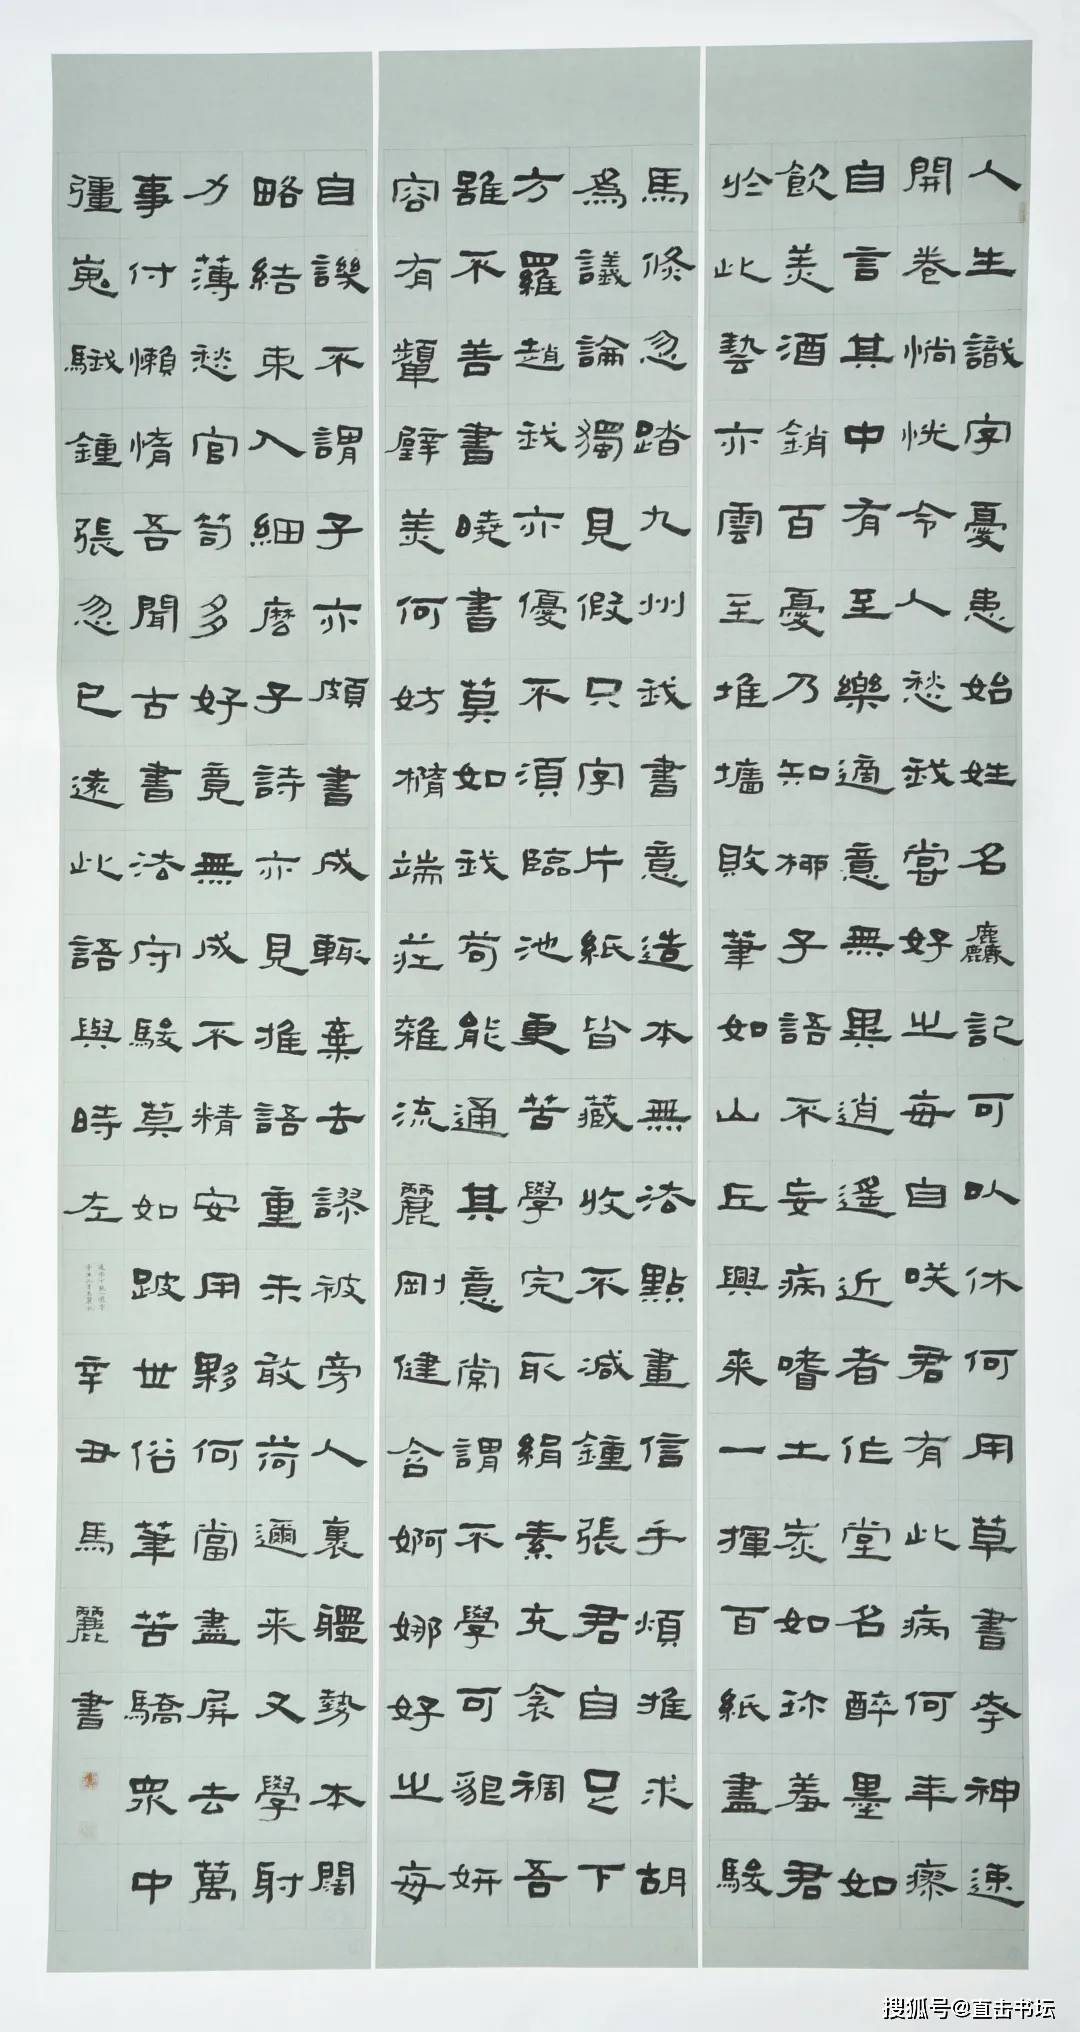 人生識字憂患始姓名麤記可以休何用草書夸神速
開卷惝恍令人愁我嘗好之每自咲君有此病何年瘳
自言其中有至樂適意無異逍遙近者作堂名醉墨如
飲美酒銷百憂乃知柳子語不妄病嗜土炭如珍羞君
於此藝亦雲至堆墻敗筆如山丘興来一揮百紙盡駿
馬倏忽踏九州我書意造本無法點畫信手煩推求胡
為議論獨見假只字片紙皆藏收不減鍾張君自足下
方羅趙我亦優不須臨池更苦學完取絹素充衾裯吾
雖不善書曉書莫如我苟能通其意常謂不學可貌妍
容有顰璧美何妨橢端莊雜流麗剛健含婀娜好之每
自譏不謂子亦頗書成輒棄去謬被旁人裏體勢本闊
略結束入細麼子詩亦見推語重未敢荷邇来又學射
力薄愁官笴多好竟無成不精安用夥何當盡屏去萬
事付懶惰吾聞古書法守駿莫如跛世俗筆苦驕眾中
彊嵬騀鍾張忽已遠此語與時左
辛丑馬麗書
搜狐号@直击书坛